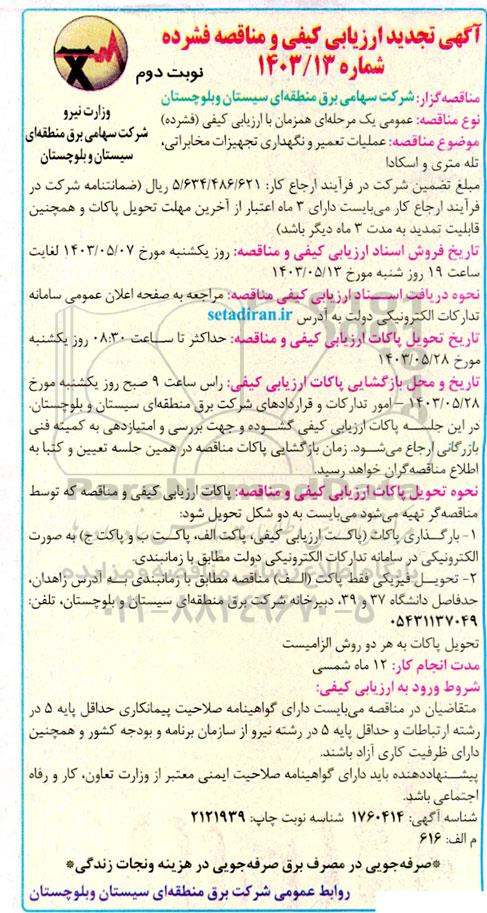 آگهی تجدید ارزیابی کیفی و مناقصه فشرده
شماره ۱۴۰۳/۱۳
نوبت دوم
وزارت نیرو
شرکت سهامی برق منطقه‌ای
سیستان و بلوچستان
مناقصه‌گزار: شرکت سهامی برق منطقه‌ای سیستان وبلوچستان
نوع مناقصه: عمومی یک مرحله‌ای همزمان با ارزیابی کیفی (فشرده)
موضوع مناقصه: عملیات تعمیر و نگهداری تجهیزات مخابراتی،
تله متری و اسکادا
مبلغ تضمین شرکت در فرآیند ارجاع کار: ۵/۶۳۴/۴۸۶/۶۲۱ ریال (ضمانتنامه شرکت در
فرآیند ارجاع کار می‌بایست دارای ۳ ماه اعتبار از آخرین مهلت تحویل پاکات و همچنین
قابلیت تمدید به مدت ۳ ماه دیگر باشد)
تاریخ فروش اسناد ارزیابی کیفی و مناقصه: روز یکشنبه مورخ ۱۴۰۳/۰۵/۰۷ لغایت
ساعت ۱۹ روز شنبه مورخ ۱۴۰۳/۰۵/۱۳
نحوه دریافت اسناد ارزیابی کیفی مناقصه: مراجعه به صفحه اعلان عمومی سامانه
تدارکات الکترونیکی دولت به آدرس setadiran.ir
تاریخ تحویل پاکات ارزیابی کیفی و مناقصه: حداکثر تا ساعت ۰۸:۳۰ روز یکشنبه
مورخ ۱۴۰۳/۰۵/۲۸
تاریخ و محل بازگشایی پاکات ارزیابی کیفی: راس ساعت ۹ صبح روز یکشنبه مورخ
۱۴۰۳/۰۵/۲۸ – امور تدارکات و قراردادهای شرکت برق منطقه‌ای سیستان و بلوچستان.
در این جلسه پاکات ارزیابی کیفی گشوده و جهت بررسی و امتیازدهی به کمیته فنی
بازرگانی ارجاع می‌شود. زمان بازگشایی پاکات مناقصه در همین جلسه تعیین و کتبا به
اطلاع مناقصه‌گران خواهد رسید.
نحوه تحویل پاکات ارزیابی کیفی و مناقصه: پاکات ارزیابی کیفی و مناقصه که توسط
مناقصه‌گر تهیه می‌شود می‌بایست به دو شکل تحویل شود:
۱- بارگذاری پاکات (پاکت ارزیابی کیفی، پاکت الف، پاکت ب و پاکت ج) به صورت
الکترونیکی در سامانه تدارکات الکترونیکی دولت مطابق با زمانبندی.
۲- تحویل فیزیکی فقط پاکت (الف) مناقصه مطابق با زمانبندی به آدرس زاهدان،
حدفاصل دانشگاه ۳۷ و ۳۹، دبیرخانه شرکت برق منطقه‌ای سیستان و بلوچستان، تلفن:
۰۵۴۳۱۱۳۷۰۴۹
تحویل پاکات به هر دو روش الزامیست
مدت انجام کار: ۱۲ ماه شمسی
شروط ورود به ارزیابی کیفی:
متقاضیان در مناقصه می‌بایست دارای گواهینامه صلاحیت پیمانکاری حداقل پایه ۵ در
رشته ارتباطات و حداقل پایه ۵ در رشته نیرو از سازمان برنامه و بودجه کشور و همچنین
دارای ظرفیت کاری آزاد باشند.
پیشنهاددهنده باید دارای گواهینامه صلاحیت ایمنی معتبر از وزارت تعاون، کار و رفاه
اجتماعی باشد.
شناسه آگهی: ۱۷۶۰۴۱۴ شناسه نوبت چاپ: ۲۱۲۱۹۳۹
م الف: ۶۱۶
*صرفه‌جویی در مصرف برق صرفه‌جویی در هزینه ونجات زندگی*
روابط عمومی شرکت برق منطقه‌ای سیستان وبلوچستان
ParsNamadData
پایگاه اطلاع رسانی مناقصه و مزایده
۰۲۱-۸۸۳۴۹۶۷۰-۵